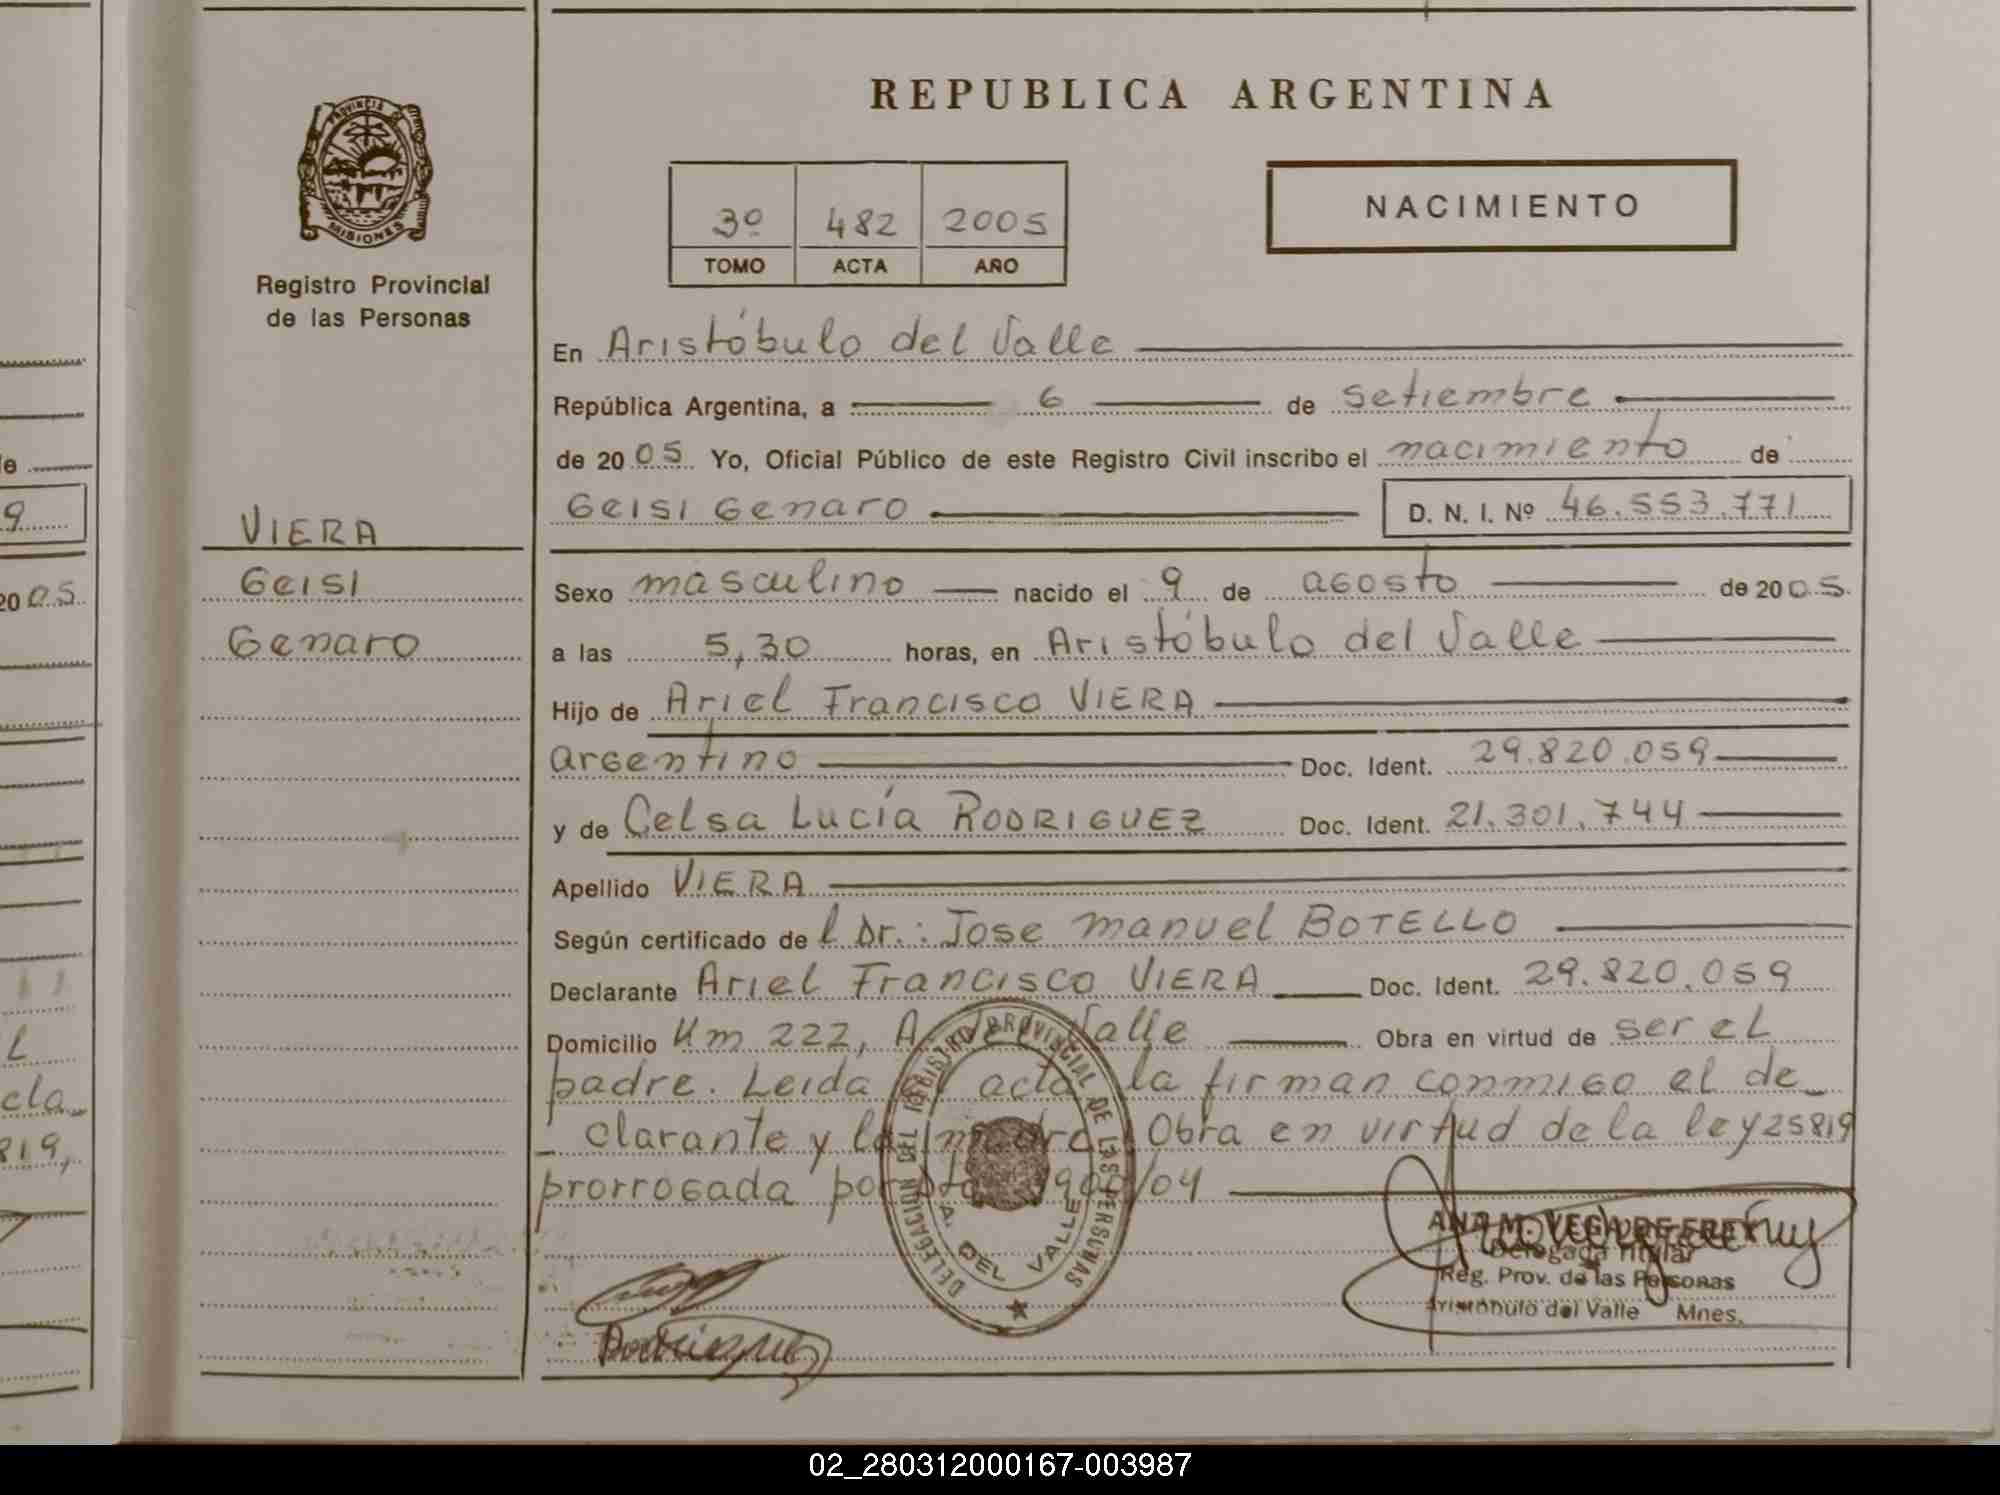 PROVINCIA DE
MISIONES
Registro Provincial
de las Personas
VIERA
Geisi
Genaro
REPUBLICA ARGENTINA
3º 482 2005
TOMO ACTA AÑO
NACIMIENTO
En Aristóbulo del Valle
República Argentina, a 6 de setiembre
de 2005 Yo, Oficial Público de este Registro Civil inscribo el nacimiento de
Geisi Genaro D. N. I. Nº 46.553.771
Sexo masculino nacido el 9 de agosto de 2005
a las 5,30 horas, en Aristóbulo del Valle
Hijo de Ariel Francisco VIERA
argentino Doc. Ident. 29.820.059
y de Celsa Lucía RODRIGUEZ Doc. Ident. 21.301.744
Apellido VIERA
Según certificado de l Dr.: Jose manuel BOTELLO
Declarante Ariel Francisco VIERA Doc. Ident. 29.820.059
Domicilio Km 222, A. del Valle Obra en virtud de ser el
padre. Leida acta la firman conmigo el de_
_clarante y la madre. Obra en virtud de la ley 25819
prorrogada por
DELEGACION DEL REGISTRO PROVINCIAL DE LAS PERSONAS
A. DEL VALLE
Rodriguez
ANA M. VEGA DE FREY
Delegada Titular
Reg. Prov. de las Personas
Aristóbulo del Valle Mnes.
9
2005
cla_
819,
02_280312000167-003987